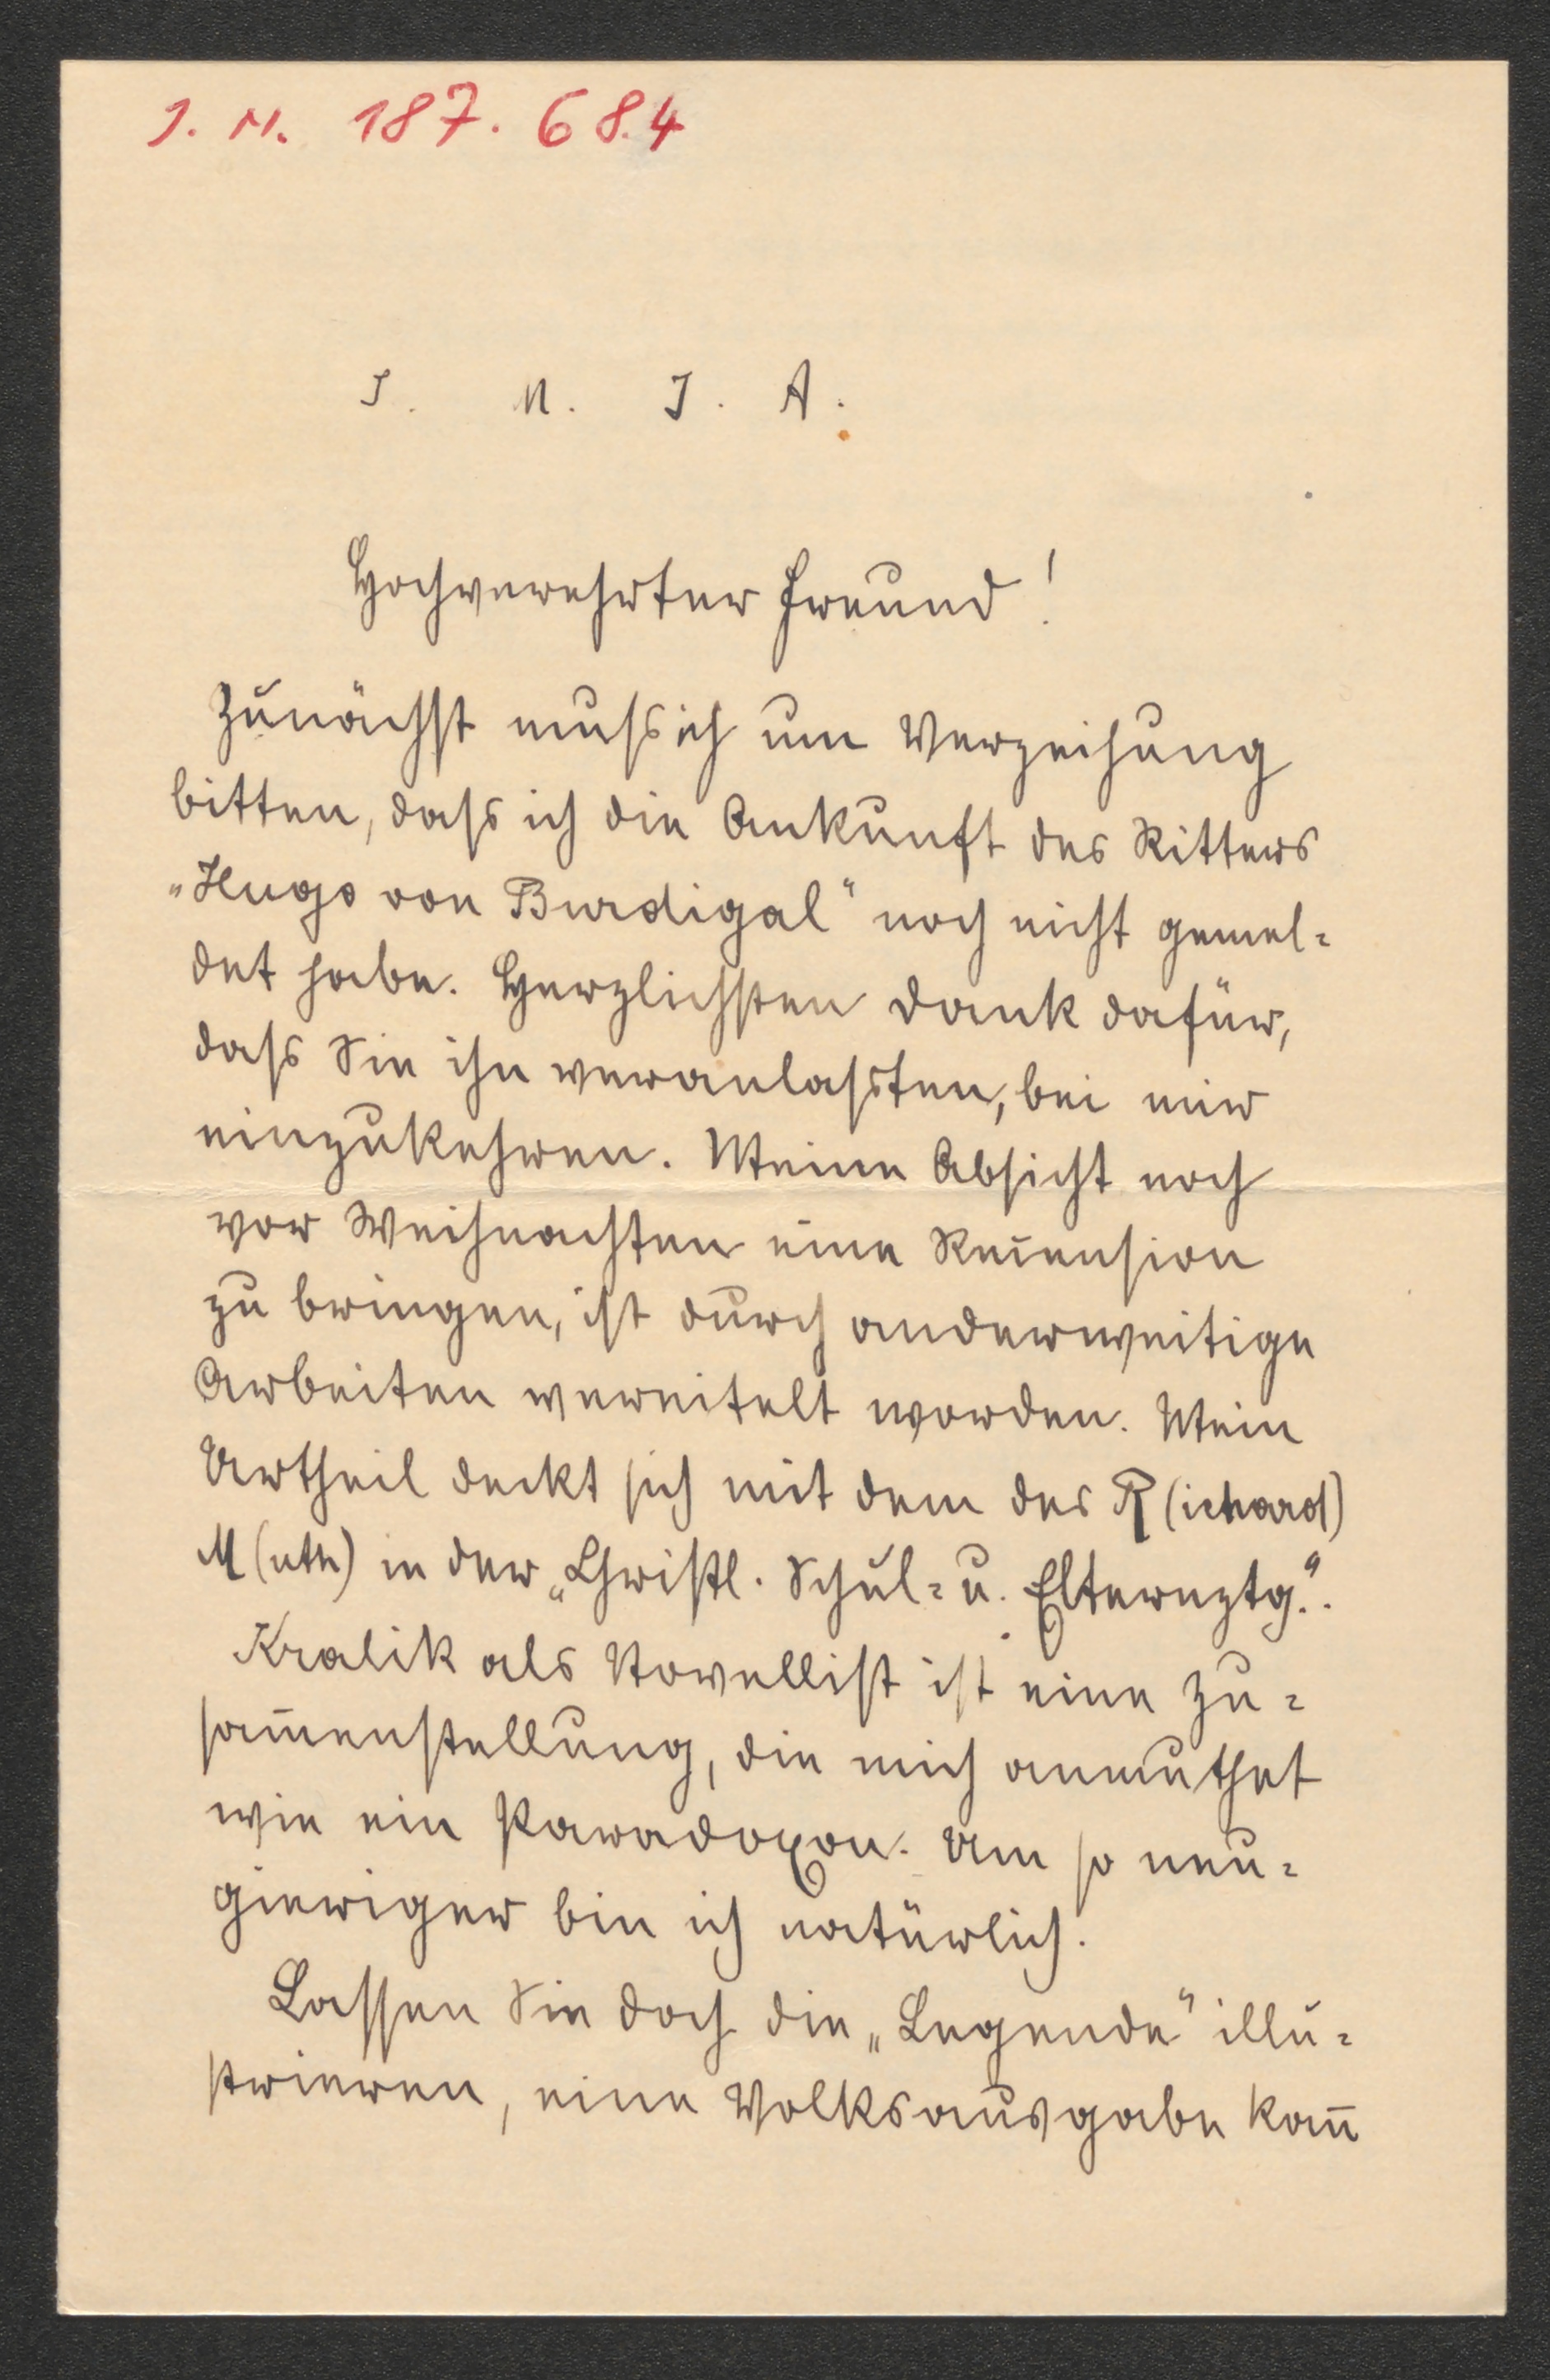 J. N. 187.684
J. M. J. A.
Hochverehrter Freund!
Zunächst muss ich um Verzeihung
bitten, dass ich die Ankunft des Ritters
„Hugo von Burdigal“ noch nicht gemel-
det habe. Herzlichsten Dank dafür,
dass Sie ihn veranlassten, bei mir
einzukehren. Meine Absicht noch
vor Weihnachten eine Recension
zu bringen, ist durch anderweitige
Arbeiten vereitelt worden. Mein
Urtheil deckt sich mit dem des R(ichard)
M(uth) in der „Christl. Schul- u. Elternztg.“.
Kralik als Novellist ist eine Zu-
sam̅enstellung, die mich anmuthet
wie ein Paradoxon. Um so neu-
gieriger bin ich natürlich.
Lassen Sie doch die „Legende“ illu-
strieren, eine Volksausgabe kan̅